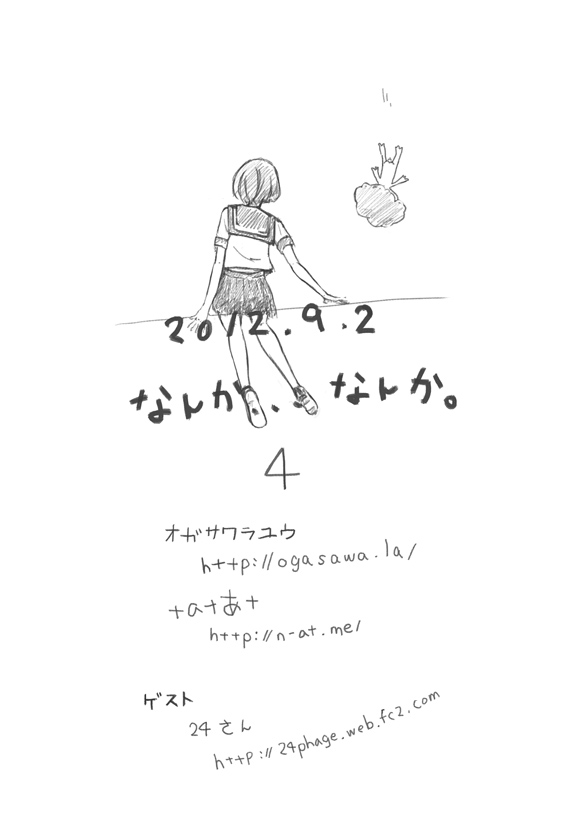 2012.9.2
なんか...なんか。
4
オガサワラユウ
http://ogasawa.la/
+a+あ+
http://n-at.me/
ゲスト
24さん
http://24phage.web.fc2.com